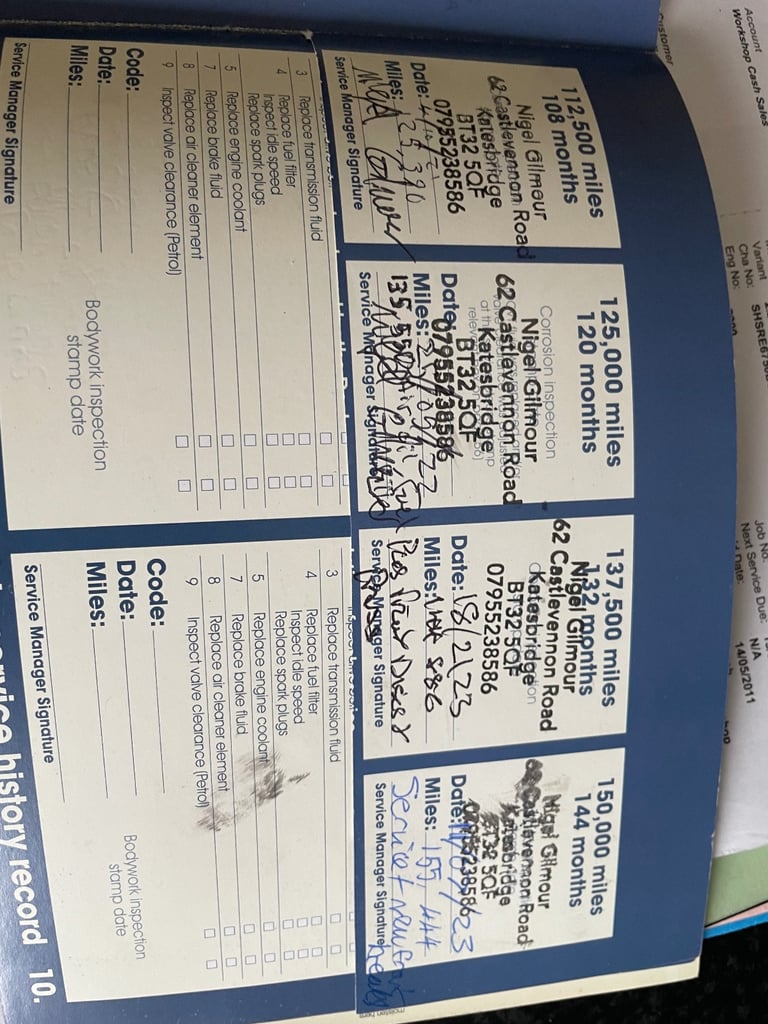 Account
Workshop Cash Sales
Customer
Variant
Cha No:
Eng No:
Job No:
Next Service Due:
N/A
14/05/2011
112,500 miles
108 months
Nigel Gilmour
62 Castlevennon Road
Katesbridge
BT32 5QF
07955238586
Date:
Miles: 125,390
Service Manager Signature
125,000 miles
120 months
Corrosion inspection
Nigel Gilmour
62 Castlevennon Road
Katesbridge
BT32 5QF
07955238586
Date:
Miles:
Service Manager Signature
137,500 miles
132 months
Nigel Gilmour
62 Castlevennon Road
Katesbridge
BT32 5QF
07955238586
Date: 18/2/23
Miles:
Plus Front Discs &
Service Manager Signature
150,000 miles
144 months
Nigel Gilmour
62 Castlevennon Road
Katesbridge
BT32 5QF
07955238586
Date:
Miles: 155,444
Service + new
Service Manager Signature
3 Replace transmission fluid
4 Replace fuel filter
Inspect idle speed
Replace spark plugs
5 Replace engine coolant
7 Replace brake fluid
8 Replace air cleaner element
9 Inspect valve clearance (Petrol)
Code:
Date:
Miles:
Bodywork inspection
stamp date
Service Manager Signature
3 Replace transmission fluid
4 Replace fuel filter
Inspect idle speed
Replace spark plugs
5 Replace engine coolant
7 Replace brake fluid
8 Replace air cleaner element
9 Inspect valve clearance (Petrol)
Code:
Date:
Miles:
Bodywork inspection
stamp date
Service Manager Signature
history record 10.